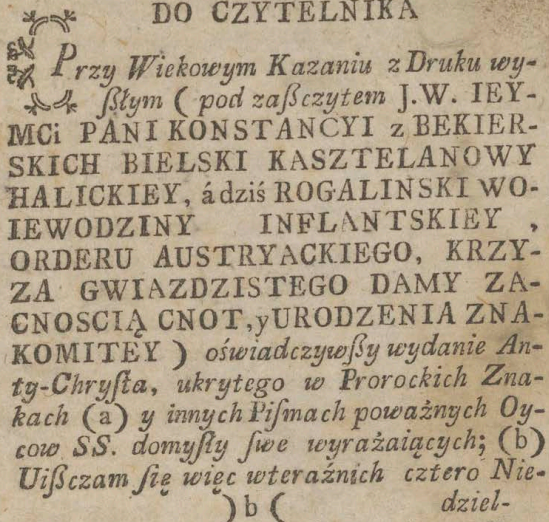 DO CZYTELNIKA
Przy Wiekowym Kazaniu z Druku wy-
ßłym ( pod zaßczytem J.W. IEY-
MCi PANI KONSTANCYI z BEKIER-
SKICH BIELSKI KASZTELANOWY
HALICKIEY, á dziś ROGALINSKI WO-
IEWODZINY INFLANTSKIEY ,
ORDERU AUSTRYACKIEGO, KRZY-
ZA GWIAZDZISTEGO DAMY ZA-
CNOSCIĄ CNOT, y URODZENIA ZNA-
KOMITEY ) oświadczywßy wydanie An-
ty-Chryſta, ukrytego w Prorockich Zna-
kach (a) y innych Piſmach poważnych Oy-
cow SS. domyſły ſwe wyrażaiących; (b)
Uißczam ſię więc wteraźnich cztero Nie-
)b( dziel-